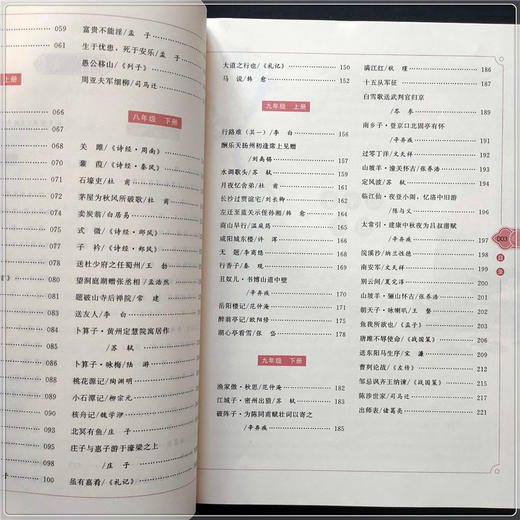 059
061
上册
066
067
068
070
098
100
富贵不能淫/孟 子
生于忧患，死于安乐/孟 子
愚公移山/《列子》
周亚夫军细柳/司马迁
八年级 下册
关 雎/《诗经·周南》
蒹 葭/《诗经·秦风》
石壕吏/杜 甫
茅屋为秋风所破歌/杜 甫
卖炭翁/白居易
式 微/《诗经·邶风》
子 衿/《诗经·郑风》
送杜少府之任蜀州/王 勃
望洞庭湖赠张丞相/孟浩然
题破山寺后禅院/常 建
送友人/李 白
卜算子·黄州定慧院寓居作
/苏 轼
卜算子·咏梅/陆 游
桃花源记/陶渊明
小石潭记/柳宗元
核舟记/魏学洢
北冥有鱼/庄 子
庄子与惠子游于濠梁之上
/庄 子
虽有嘉肴/《礼记》
大道之行也/《礼记》 150
马 说/韩 愈 152
九年级 上册
行路难（其一）/李 白 156
酬乐天扬州初逢席上见赠
/刘禹锡 158
水调歌头/苏 轼 160
月夜忆舍弟/杜 甫 161
长沙过贾谊宅/刘长卿 162
左迁至蓝关示侄孙湘/韩 愈 163
商山早行/温庭筠 164
咸阳城东楼/许 浑 165
无 题/李商隐 166
行香子/秦 观 167
丑奴儿·书博山道中壁
/辛弃疾 169
岳阳楼记/范仲淹
醉翁亭记/欧阳修
湖心亭看雪/张 岱 178
九年级 下册
渔家傲·秋思/范仲淹 182
江城子·密州出猎/苏 轼 183
破阵子·为陈同甫赋壮词以寄之
/辛弃疾 185
满江红/秋 瑾 186
十五从军征 187
白雪歌送武判官归京
/岑 参 189
南乡子·登京口北固亭有怀
/辛弃疾
过零丁洋/文天祥
山坡羊·潼关怀古/张养浩
定风波/苏 轼
临江仙·夜登小阁，忆洛中旧游
/陈与义
太常引·建康中秋夜为吕叔潜赋
/辛弃疾 197
浣溪沙/纳兰性德
南安军/文天祥
别云间/夏完淳
山坡羊·骊山怀古/张养浩
朝天子·咏喇叭/王 磐
鱼我所欲也/《孟子》
唐雎不辱使命/《战国策》
送东阳马生序/宋 濂
曹刿论战/《左传》
邹忌讽齐王纳谏/《战国策》
陈涉世家/司马迁
出师表/诸葛亮 221
003
目录